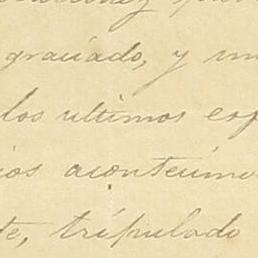 graciado, y un
los ultimos esf
ios acontecimi
te, tripulado